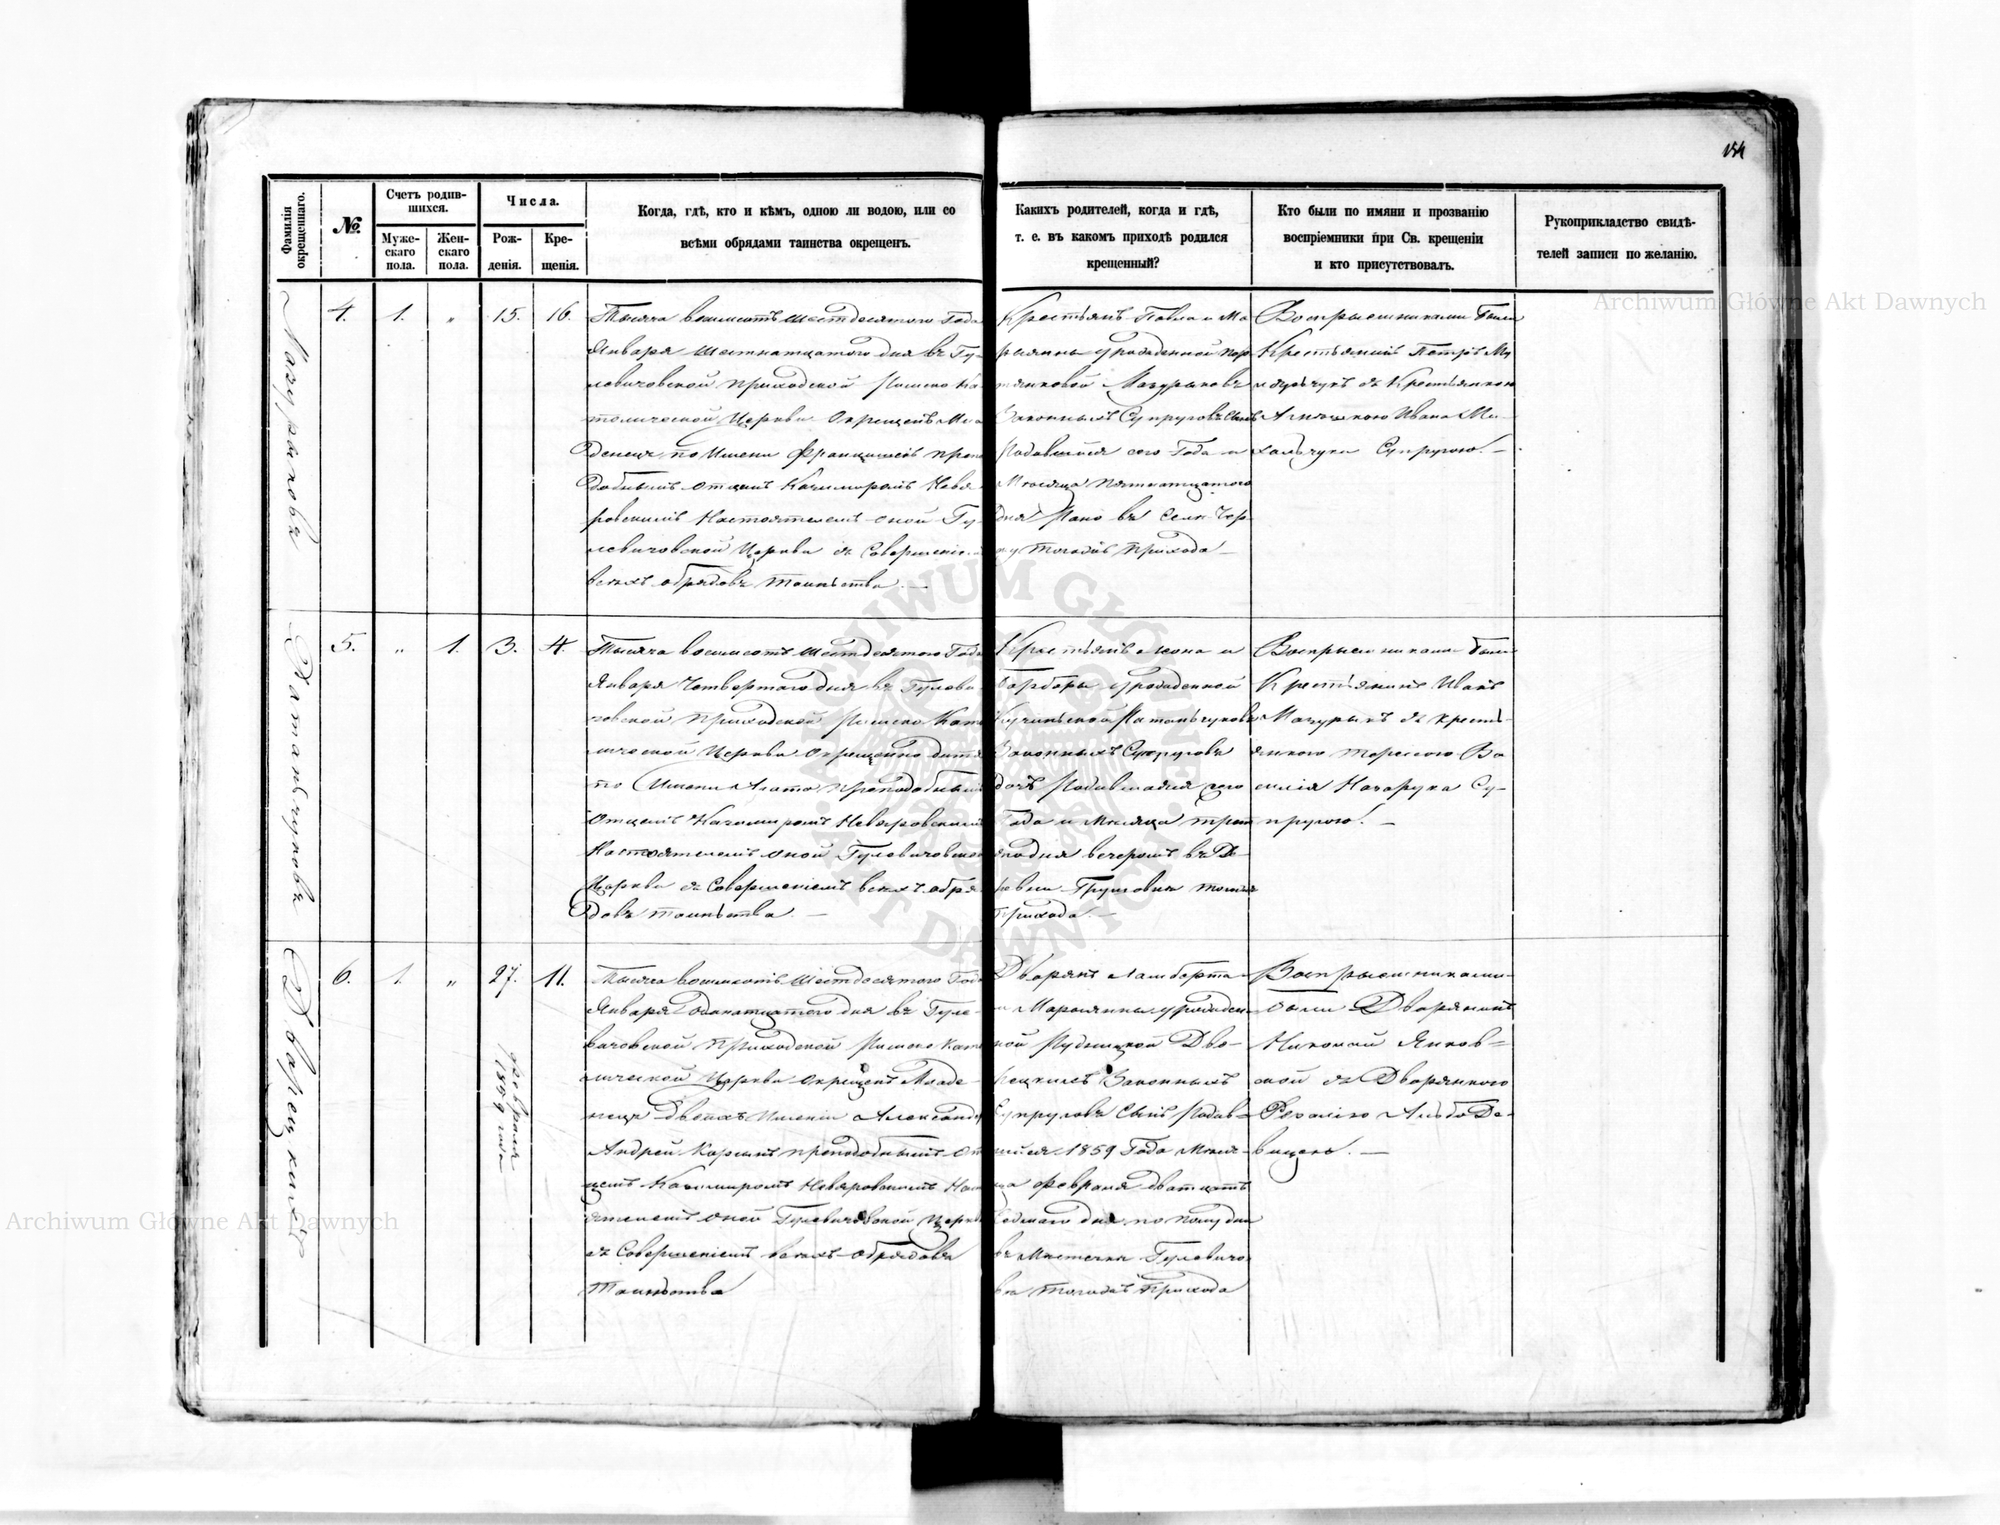 154
Фамилія окрещеннаго.
№.
Счетъ родив-
шихся.
Муже-
скаго
пола.
Жен-
скаго
пола.
Числа.
Рож-
денія.
Кре-
щенія.
Когда, гдѣ, кто и кѣмъ, одною ли водою, или со
всѣми обрядами таинства окрещенъ.
Какихъ родителей, когда и гдѣ,
т. е. въ какомъ приходѣ родился
крещенный?
Кто были по имяни и прозванію
воспріемники при Св. крещеніи
и кто присутствовалъ.
Рукоприкладство свидѣ-
телей записи по желанію.
Archiwum Główne Akt Dawnych
Мазурыковъ
4. 1. „ 15. 16.
Тысяча восмсотъ шестдесятого Года
Января шестнатцатого дня въ Гу-
левичовской приходской Римско Ка
толической Церкви Окрещенъ Мла
денецъ по Имени Францишекъ препо
добнымъ Отцемъ Казимиромъ Невя-
ровскимъ Настоятелемъ оной Гу-
левичовской Церкви съ Совершеніемъ
всехъ обрядовъ таинства. —
Крестьянъ Павла и Ма
рыянны урожденной
Мазурыковъ
Законныхъ Супруговъ Сынъ
Родившійся сего Года и
Месяца пятнатцатого
дня Рано въ Селе Чер-
тогожъ прихода —
Воспрыемниками были
Крестьянинъ Петръ
съ Крестьянкою
Ивана Ми-
хальчука Супругою. —
5. „ 1. 3. 4.
Тысяча восмсотъ шестдесятого Года
Января Четвертого дня въ Гулеви-
човской приходской Римско Като
лической Церкви Окрещенно дитя
по Имени Агата преподобнымъ
Отцемъ Казимиромъ Невяровскимъ
Настоятелемъ оной Гулевичовской
Церкви съ Совершеніемъ всехъ обря-
довъ таинства. —
Крестьянъ
Барбары урожденной
Законныхъ Супруговъ
дочъ Родившаяся сего
Года и Месяца трет
яго дня вечеромъ въ Де-
ревни Грушовка тогожъ
прихода. —
Воспрыемниками были
Крестьянинъ Иванъ
Мазурыкъ съ крестъ-
янкою Терессою Ва
силія Назарука Су-
пругою. —
Дворецкихъ
6. 1. „ 27. 11.
февраля
1859 года
Тысяча восмсотъ шестдесятого Года
Января Одинатцатого дня въ Гуле-
вичовской приходской Римско Като
лической Церкви окрещенъ Младе-
нецъ двохъ Имени Александръ
Андрей Корсынъ преподобнымъ От
цемъ Казимиромъ Невяровскимъ Наст
ятелемъ оной Гулевичовской Церкви
съ Совершеніемъ всехъ обрядовъ
Таинства
Дворянъ Ламберта
и Марыянны урожден-
ной Рудницкой Дво-
рецкихъ Законныхъ
Супруговъ Сынъ Родив-
шійся 1859 Года Меся-
ца февраля дватцать
седмаго дня по полудни
въ Мистечки Гулевичо
вки тогожъ прихода
Воспрыемниками
были Дворянинъ
Николай Янков-
ской съ Дворянкою
Розалію Альбо Де-
вицею. —
Archiwum Główne Akt Dawnych
ARCHIWUM GŁÓWNE AKT DAWNYCH